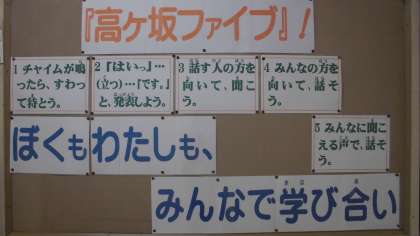 『高ヶ坂ファイブ』！
1 チャイムが鳴
ったら、すわっ
て待とう。
2 『はいっ』…
（立つ）…『です。』
と、発表しよう。
3 話す人の方を
向いて、聞こ
う。
4 みんなの方を
向いて、話そ
う。
5 みんなに聞こ
える声で、話そ
う。
ぼくもわたしも、
みんなで学び合い